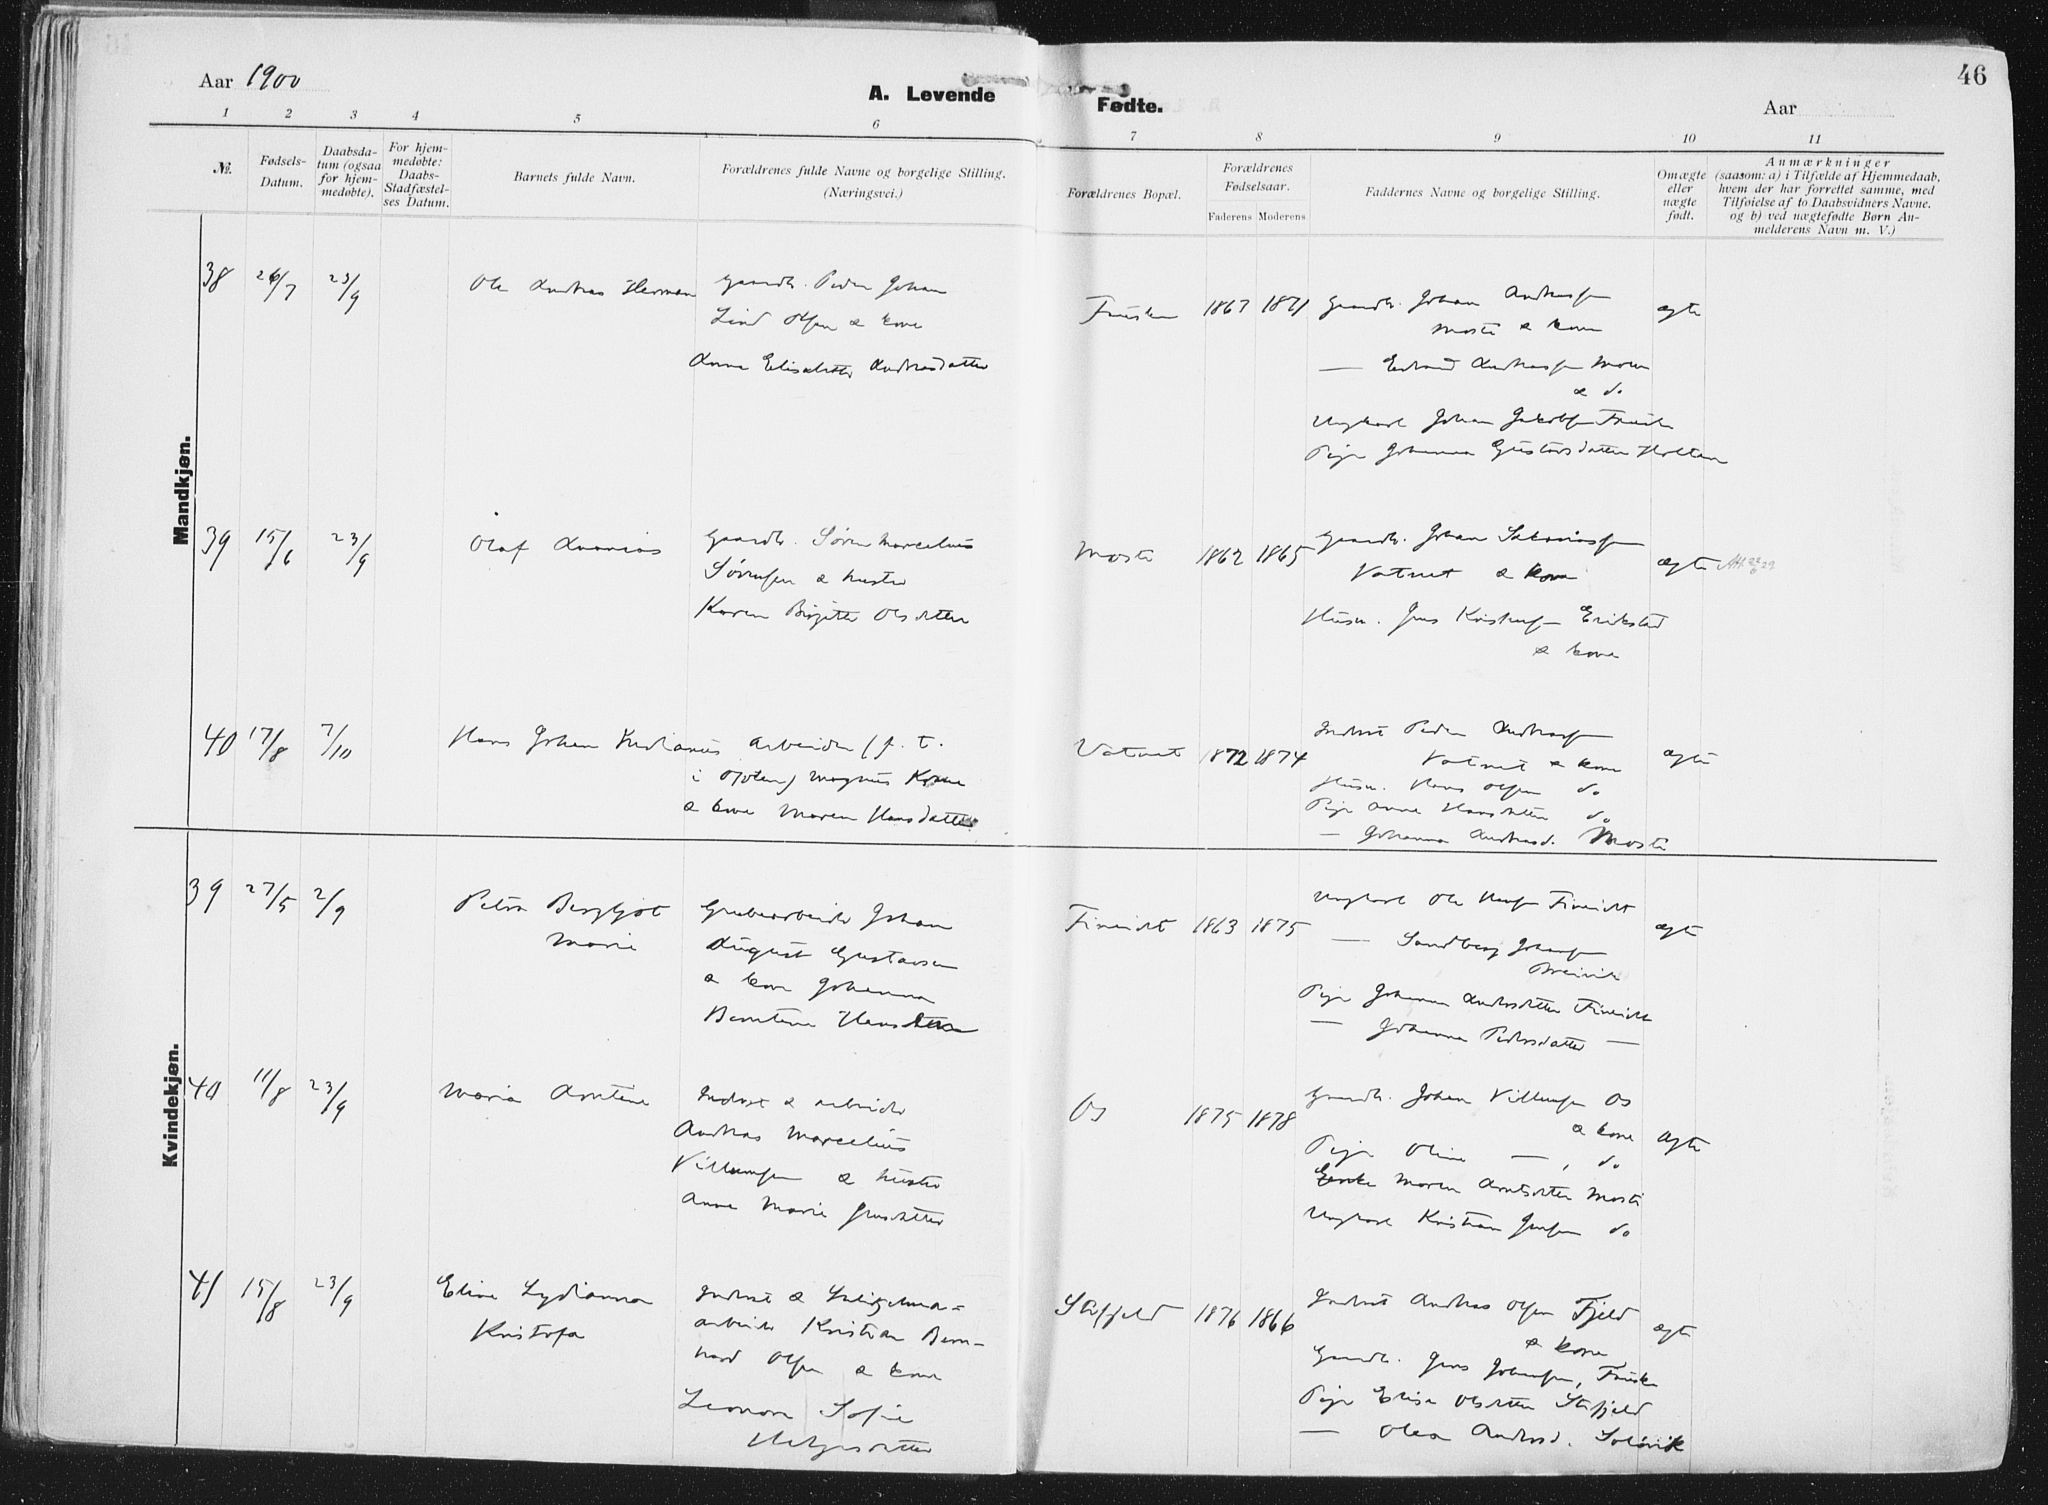 46
Aar 1900
A. Levende Fødte.
Aar
1 2 3 4 5 6 7 8 9 10 11
№.
Fødsels-
Datum.
Daabsda-
tum (ogsaa
for hjem-
medøbte).
For hjem-
medøbte:
Daabs-
Stadfæstel-
ses Datum.
Barnets fulde Navn.
Forældrenes fulde Navne og borgelige Stilling.
(Næringsvei.)
Forældrenes Bopæl.
Forældrenes
Fødselsaar.
Faderens Moderens
Faddernes Navne og borgelige Stilling.
Om ægte
eller
nægte
født.
Anmærkninger
(saasom: a) i Tilfælde af Hjemmedaab,
hvem der har forrettet samme, med
Tilføielse af to Daabsvidners Navne.
og b) ved nægtefødte Børn An-
melderens Navn m. V.)
Mandkjøn.
38 26/7 23/9
Ole Andreas Herman
Gaardb. Peder Johan
Lind Olsen & kone
Anna Elisabeth Andreasdatter
1867 1871
Gaardb. Johan Andreassen
Mosti & kone
— Edvard Andreassen Moen
& do
Ungkarl Johan Jakobsen
Pige Johanna Gustavsdatter Holtan
ægte
39 15/6 23/9
Olaf Ananias
Gaardb. Søren Marcelius
Sørensen & hustru
Karen Birgitte Olsdatter
Mosti
1862 1865
Gaardb. Johan Sakariassen
Vatnet & kone
Husm. Jens Kristensen Erikstad
& kone
ægte
40 17/8 7/10
Hans Johan Indianus
Arbeider (f. t.
i Ofoten) Magnus
& kone Maren Hansdatter
Vatnet
1872 1874
Inderst Peder Andreassen
Vatnet & kone
Husm. Hans Olsen do
Pige Anne Hansdatter do
— Johanna Andreasd. Mosti
ægte
Kvindekjøn.
39 27/5 2/9
Petra Bergljot
Marie
Grubearbeider Johan
August Gustavsen
& kone Johanna
Berntine Hansdatter
Fineidet
1863 1875
Ungkarl Ole Fineidet
— Sandberg Johansen
Breivik
Pige Johanna Andersdatter Fineidet
— Johanna Pedersdatter —
ægte
40 11/8 23/9
Maria Arntine
Inderst & arbeider
Andreas Marcelius
Villumsen & hustru
Anne Marie Jensdatter
Os
1875 1878
Gaardb. Johan Villumsen Os
& kone
Pige Oline —, do
Enke Maren Arntsdatter Mosti
Ungkarl Kristian Jensen do
ægte
41 15/8 23/9
Eline Lydianna
Kristofa
Inderst & Sulitjelma-
arbeider Kristian Bern-
hard Olsen & kone
Leonore Sofie
Helgesdatter
Stifjeld
1876 1866
Inderst Andreas Olsen Fjeld
& kone
Gaardb. Jens Johansen,
Pige Elise Olsdatter Stifjeld
— Olea Andersd. Solvik
ægte